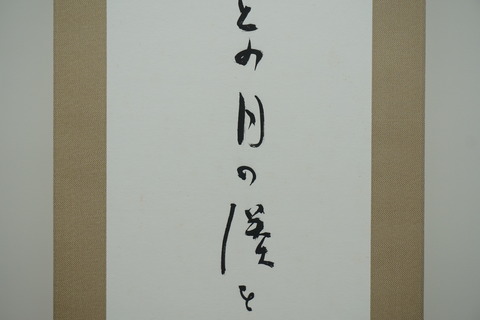 との月の渓を